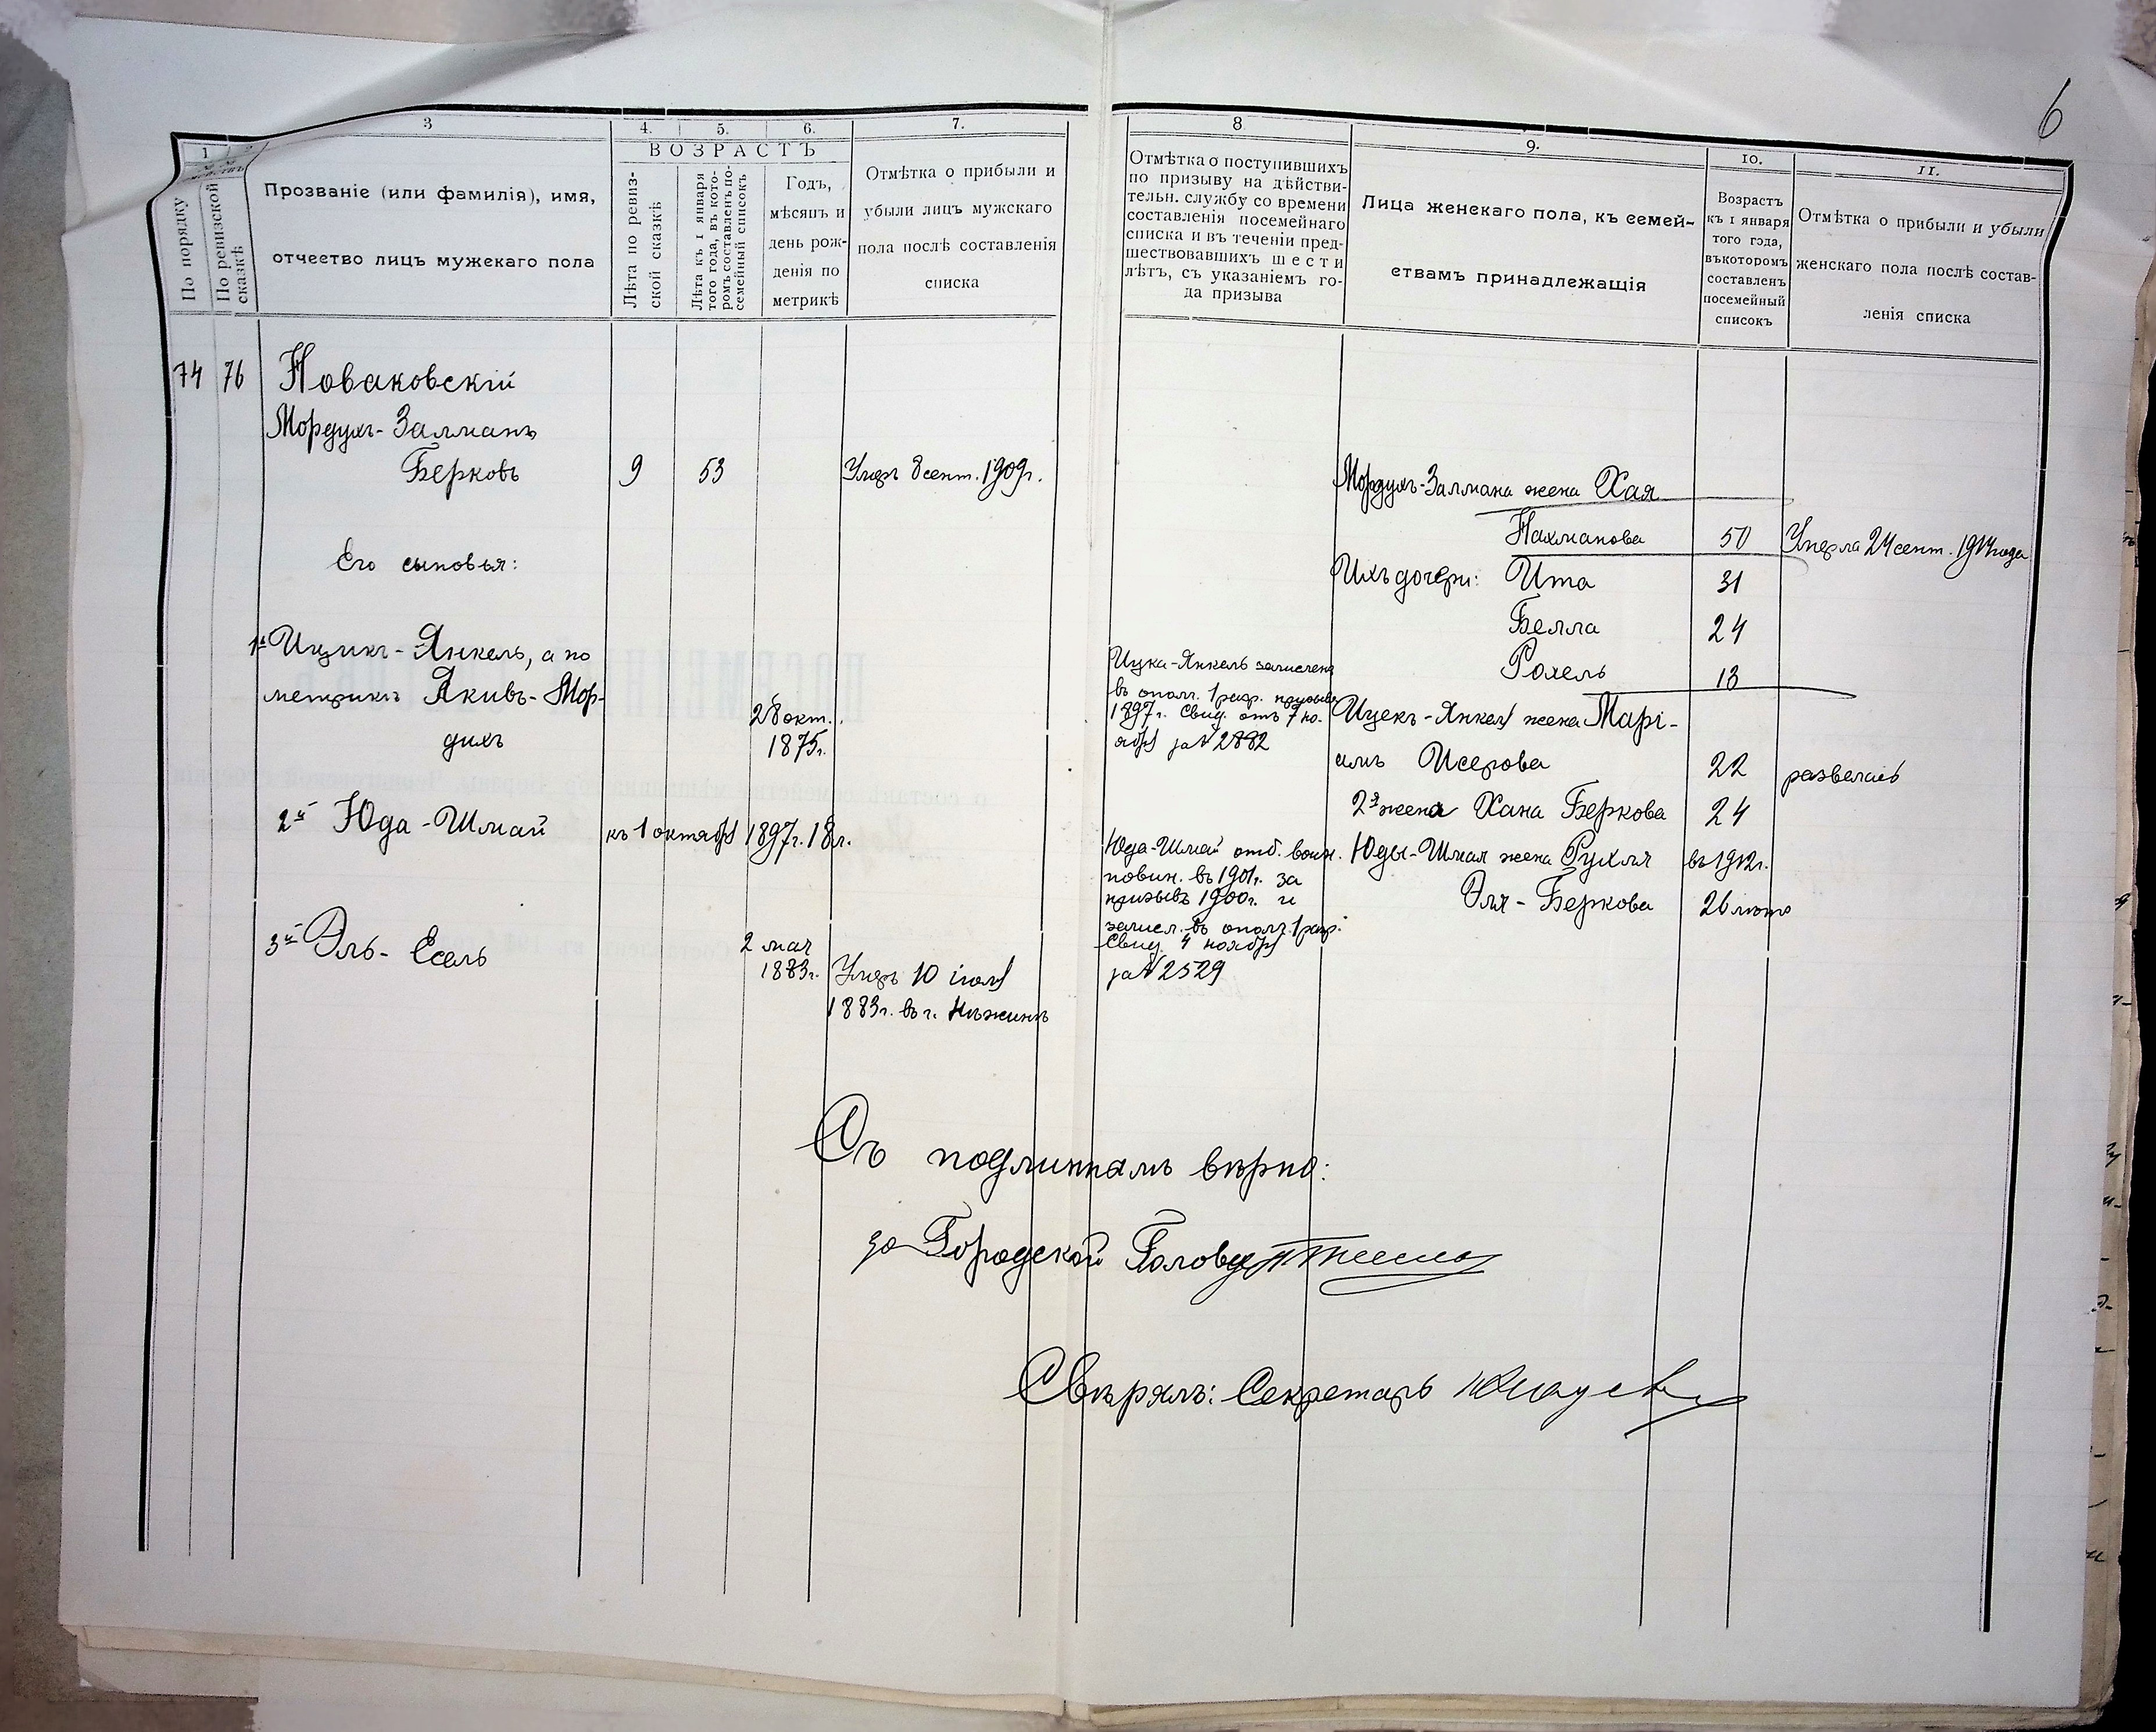 6
1
3
4.
5.
6.
7.
8
9.
10.
11.
ВОЗРАСТЪ
По порядку
По ревизской
сказкѣ
Прозваніе (или фамилія), имя,
отчество лицъ мужского пола
Лѣта по ревиз-
ской сказкѣ
Лѣта къ 1 января
того года, въ кото-
ромъ составленъ по-
семейный списокъ
Годъ,
мѣсяцъ и
день рож-
денія по
метрикѣ
Отмѣтка о прибыли и
убыли лицъ мужскаго
пола послѣ составленія
списка
Отмѣтка о поступившихъ
по призыву на дѣйстви-
тельн. службу со времени
составленія посемейнаго
списка и въ теченіи пред-
шествовавшихъ шести
лѣтъ, съ указаніемъ го-
да призыва
Лица женскаго пола, къ семей-
ствамъ принадлежащія
Возрастъ
къ 1 января
того года,
въкоторомъ
составленъ
посемейный
списокъ
Отмѣтка о прибыли и убыли
женскаго пола послѣ состав-
ленія списка
74 76 Новаковскій
Мордухъ-Залманъ
Берковъ 9 53 Умеръ 8 сент. 1909г.
Его сыновья:
1й Ицикъ-Янкель, а по
метрикѣ Якивъ-Мор-
духъ
28 окт.
1875г.
2й Юда-Шмай къ 1 октября 1897г. 18л.
3й Эль-Есель
2 мая
1883г.
Умеръ 10 іюля
1883г. въ г. Нѣжинѣ
Ицка-Янкель зачисленъ
въ ополч. 1 разр. призыва
1897г. Свид. отъ 7 но-
ября за № 2882
Юда-Шмай отб. воин.
повин. въ 1901г. за
призывъ 1900г. и
зачисл. въ ополч. 1 разр.
Свид. 4 ноября
за № 2529
Мордухъ-Залмана жена Хая
Нахманова 50 Умерла 24 сент. 1914 года
Ихъ дочери: Ита 31
Белла 24
Рохель 13
Ицекъ-Янкеля жена Марі-
имъ Исерова 22 развелась
2я жена Хана Беркова 24
Юды-Шмая жена Рухля въ 1912г.
Эля-Беркова 26 лѣтъ
Съ подлиннымъ вѣрно:
за Городской Голову
Свѣрялъ: Секретарь